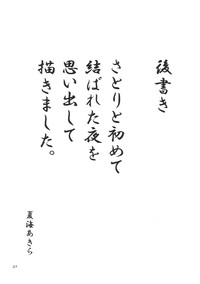 後書き
さとりと初めて
結ばれた夜を
思い出して
描きました。
夏海あきら